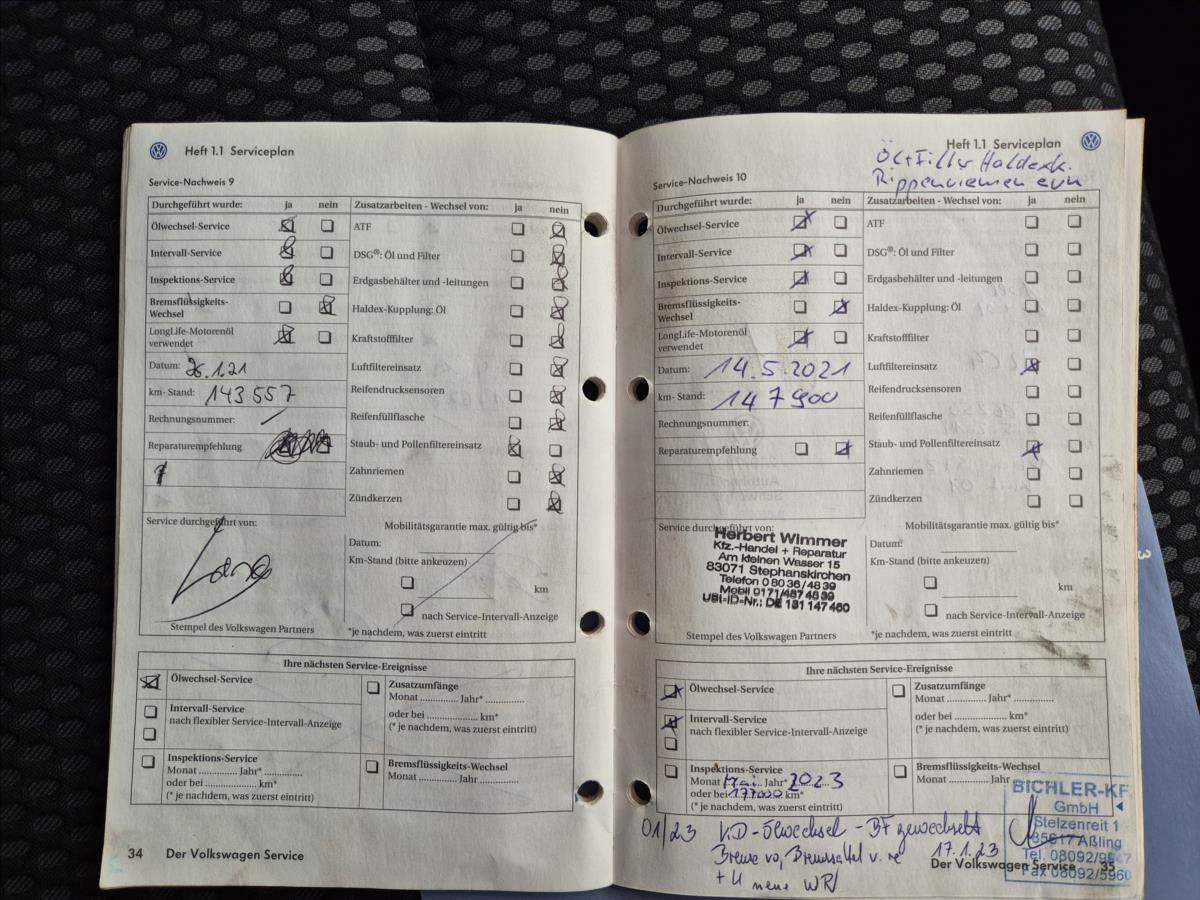 Heft 1.1 Serviceplan
Service-Nachweis 9
Durchgeführt wurde: ja nein Zusatzarbeiten - Wechsel von: ja nein
Ölwechsel-Service ATF
Intervall-Service DSG®: Öl und Filter
Inspektions-Service Erdgasbehälter und -leitungen
Bremsflüssigkeits-
Wechsel Haldex-Kupplung: Öl
LongLife-Motorenöl
verwendet Kraftstofffilter
Datum: 26.1.21 Luftfiltereinsatz
km- Stand: 143 557 Reifendrucksensoren
Rechnungsnummer: Reifenfüllflasche
Reparaturempfehlung Staub- und Pollenfiltereinsatz
Zahnriemen
Zündkerzen
Service durchgeführt von: Mobilitätsgarantie max. gültig bis*
Datum:
Km-Stand (bitte ankeuzen)
km
nach Service-Intervall-Anzeige
Stempel des Volkswagen Partners *je nachdem, was zuerst eintritt
Ihre nächsten Service-Ereignisse
Ölwechsel-Service Zusatzumfänge
Monat ............ Jahr* ............
Intervall-Service oder bei ................ km*
nach flexibler Service-Intervall-Anzeige (* je nachdem, was zuerst eintritt)
Inspektions-Service Bremsflüssigkeits-Wechsel
Monat ............ Jahr* ............ Monat ............ Jahr ............
oder bei ................ km*
(* je nachdem, was zuerst eintritt)
34 Der Volkswagen Service
Heft 1.1 Serviceplan
Öl+Filter Haldexk.
Rippenriemen
Service-Nachweis 10
Durchgeführt wurde: ja nein Zusatzarbeiten - Wechsel von: ja nein
Ölwechsel-Service ATF
Intervall-Service DSG®: Öl und Filter
Inspektions-Service Erdgasbehälter und -leitungen
Bremsflüssigkeits-
Wechsel Haldex-Kupplung: Öl
LongLife-Motorenöl
verwendet Kraftstofffilter
Datum: 14.5.2021 Luftfiltereinsatz
km- Stand: 147 900 Reifendrucksensoren
Rechnungsnummer: Reifenfüllflasche
Reparaturempfehlung Staub- und Pollenfiltereinsatz
Zahnriemen
Zündkerzen
Service durchgeführt von: Mobilitätsgarantie max. gültig bis*
Herbert Wimmer
Kfz.-Handel + Reparatur
Am kleinen Wasser 15
83071 Stephanskirchen
Telefon 0 80 36/48 39
Mobil 0171/487 48 39
USt-ID-Nr.: DE 131 147 460
Datum:
Km-Stand (bitte ankeuzen)
km
nach Service-Intervall-Anzeige
Stempel des Volkswagen Partners *je nachdem, was zuerst eintritt
Ihre nächsten Service-Ereignisse
Ölwechsel-Service Zusatzumfänge
Monat ............ Jahr* ............
Intervall-Service oder bei ................ km*
nach flexibler Service-Intervall-Anzeige (* je nachdem, was zuerst eintritt)
Inspektions-Service Bremsflüssigkeits-Wechsel
Monat Mai Jahr* 2023 Monat ............ Jahr
oder bei 177000 km*
(* je nachdem, was zuerst eintritt)
01/23 Ölwechsel - BF gewechselt
Bremse vo, Bremssattel v. re 17.1.23
+ neue
BICHLER-KF
GmbH
Stelzenreit 1
85617 Aßling
Tel. 08092/
Fax 08092/5960
Der Volkswagen Service 35
3